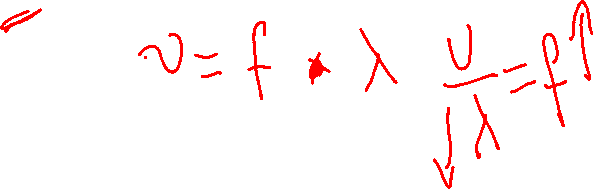 v = f • λ v/λ = f↑ ↓